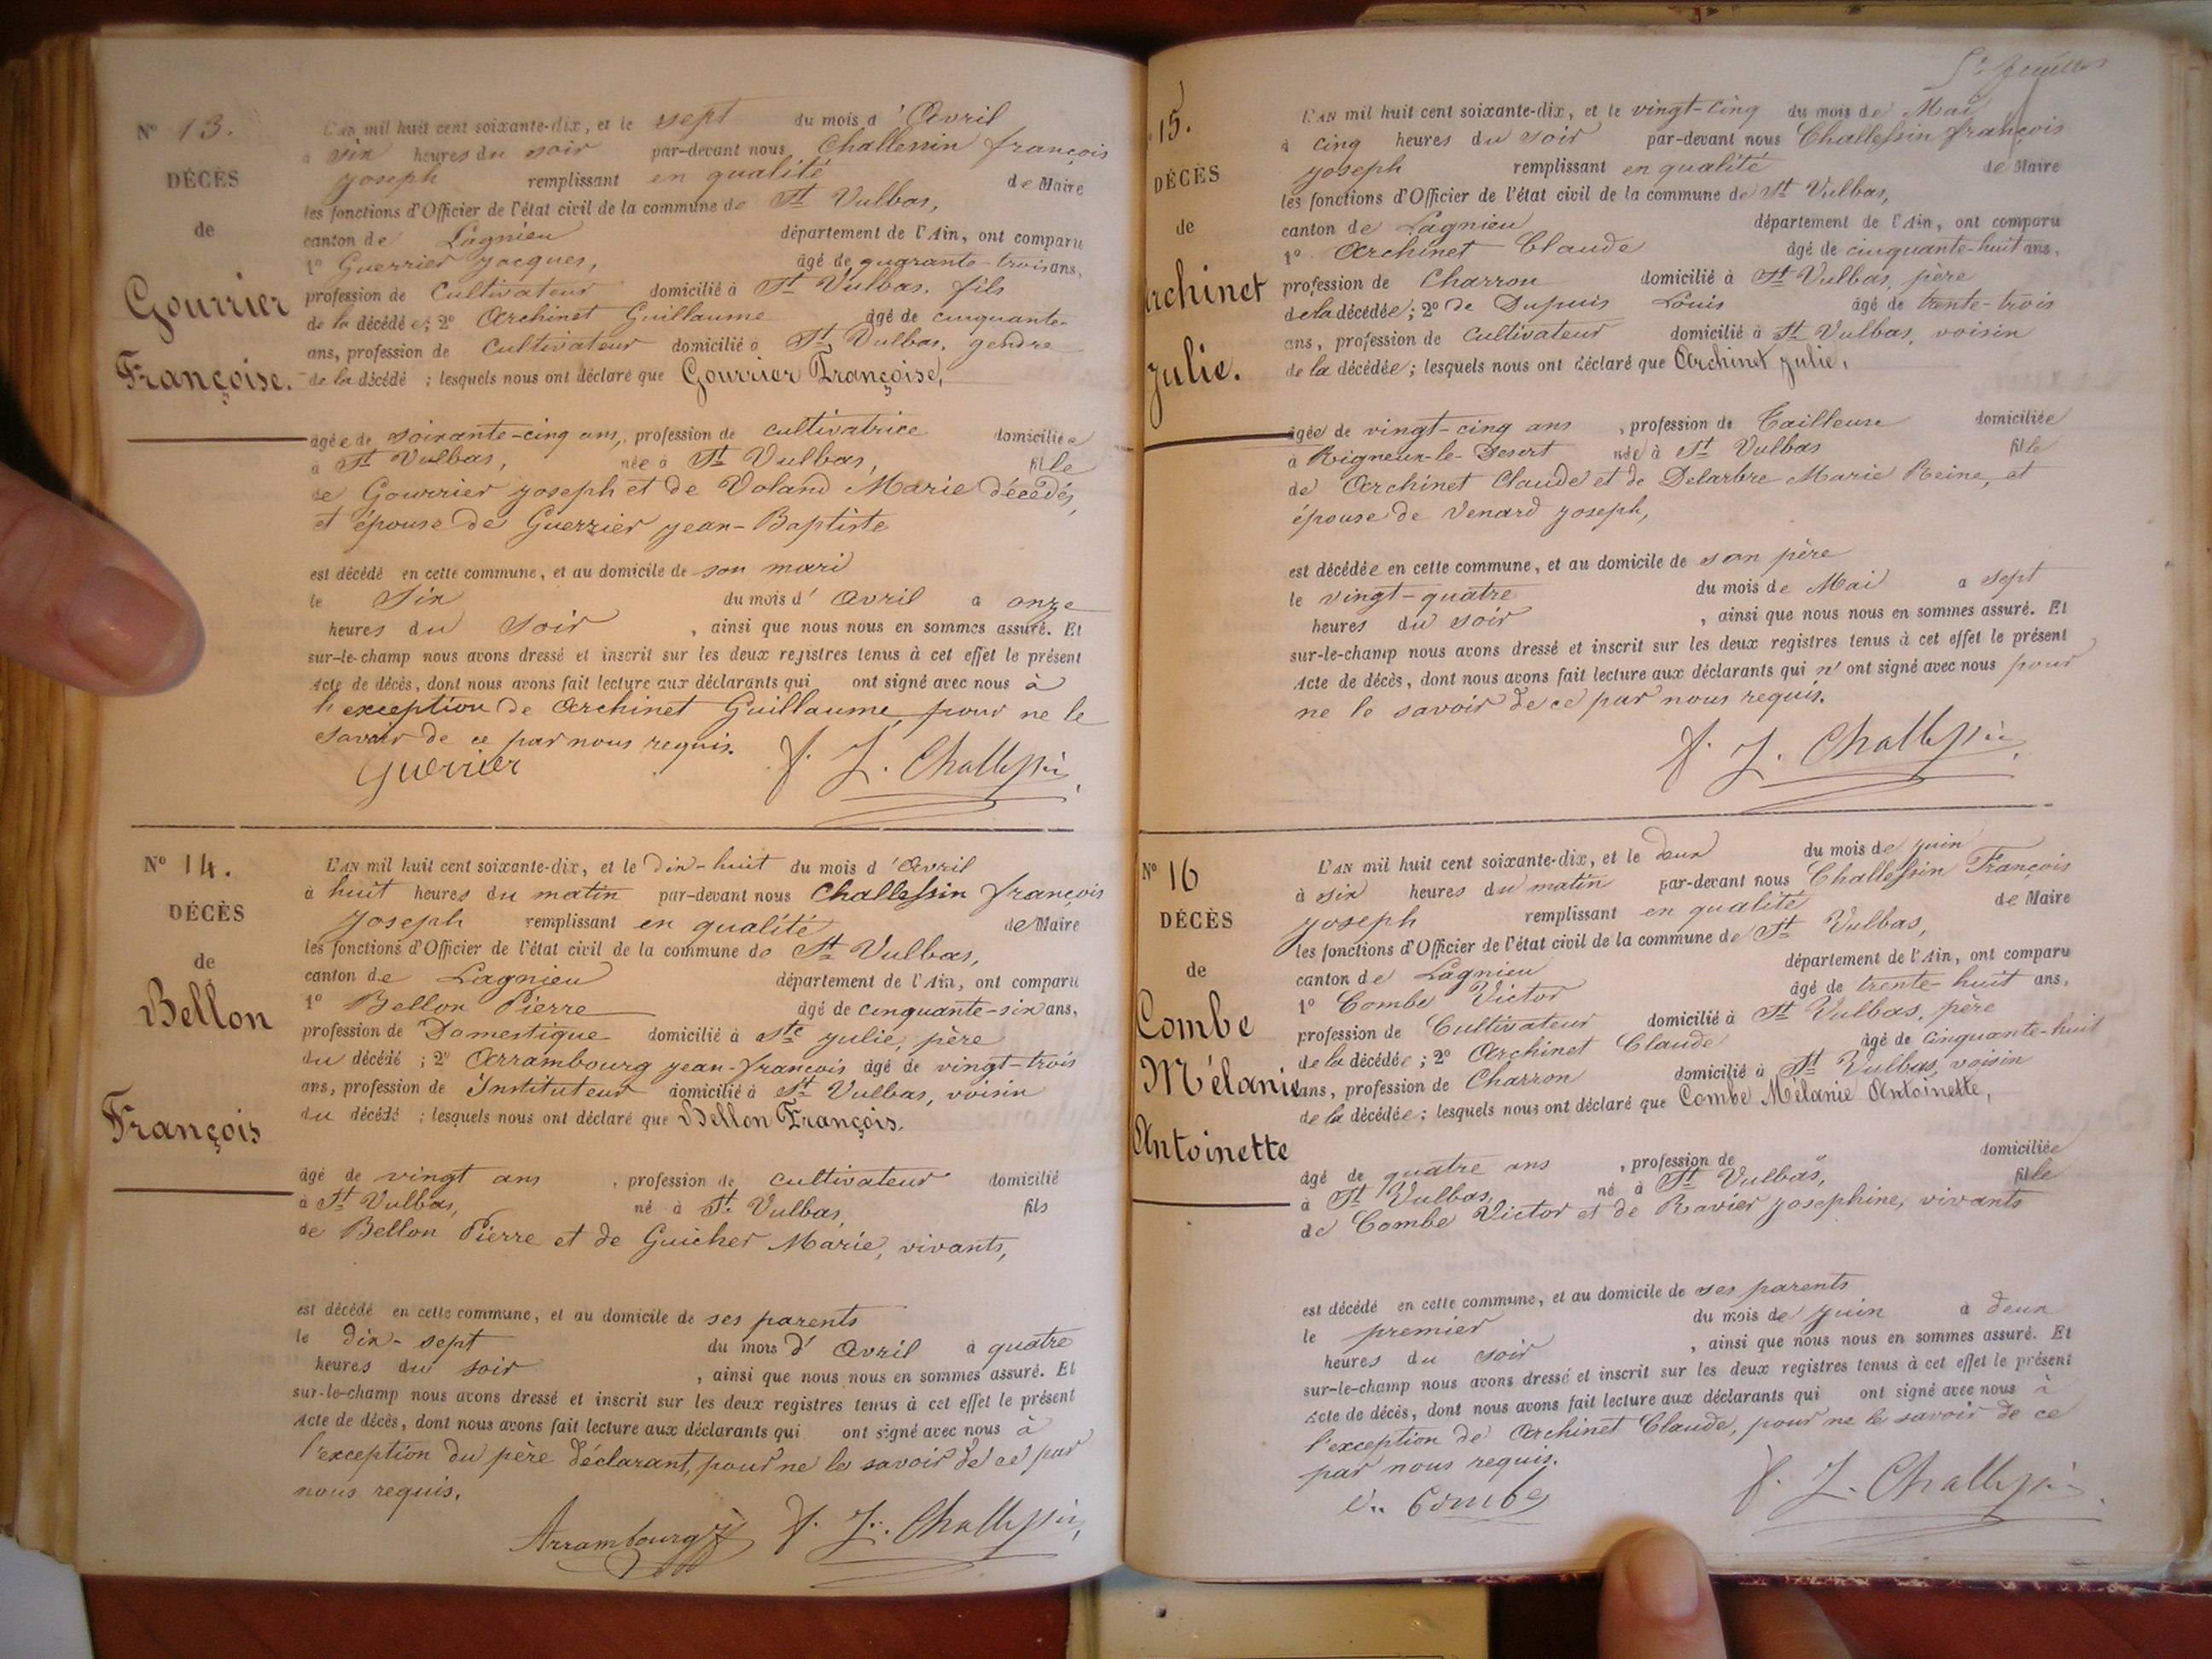 Nº 13.
DÉCÈS
de
Gourrier
Françoise.
L'AN mil huit cent soixante-dix, et le sept du mois d'Avril
à six heures du soir par-devant nous Challessin françois
Joseph remplissant en qualité de Maire
les fonctions d'Officier de l'état civil de la commune de St Vulbas,
canton de Lagnieu département de l'Ain, ont comparu
1º Guerrier Jacques, âgé de quarante-trois ans,
profession de Cultivateur domicilié à St Vulbas, fils
de la décédée; 2º Archinet Guillaume âgé de cinquante-
ans, profession de Cultivateur domicilié à St Vulbas, gendre
de la décédé ; lesquels nous ont déclaré que Gourrier Françoise,
âgée de soixante-cinq ans, profession de cultivatrice domiciliée
à St Vulbas, née à St Vulbas, fille
de Gourrier Joseph et de Voland Marie décédés,
et épouse de Guerrier Jean-Baptiste
est décédé en cette commune, et au domicile de son mari
le Six du mois d'Avril a onze
heures du Soir , ainsi que nous nous en sommes assuré. Et
sur-le-champ nous avons dressé et inscrit sur les deux registres tenus à cet effet le présent
Acte de décès, dont nous avons fait lecture aux déclarants qui ont signé avec nous à
l'exception de Archinet Guillaume, pour ne le
savoir de ce par nous requis.
Guerrier f. J. Challessin
Nº 14.
DÉCÈS
de
Bellon
François
L'AN mil huit cent soixante-dix, et le dix-huit du mois d'Avril
à huit heures du matin par-devant nous Challessin françois
Joseph remplissant en qualité de Maire
les fonctions d'Officier de l'état civil de la commune de St Vulbas,
canton de Lagnieu département de l'Ain, ont comparu
1º Bellon Pierre âgé de cinquante-six ans,
profession de Domestique domicilié à Ste Julie, père
du décédé ; 2º Arrambourg Jean-François âgé de vingt-trois
ans, profession de Instituteur domicilié à St Vulbas, voisin
du décédé ; lesquels nous ont déclaré que Bellon François.
âgé de vingt ans , profession de cultivateur domicilié
à St Vulbas, né à St Vulbas, fils
de Bellon Pierre et de Guicher Marie, vivants,
est décédé en cette commune, et au domicile de ses parents
le dix-sept du mois d'Avril à quatre
heures du soir , ainsi que nous nous en sommes assuré. Et
sur-le-champ nous avons dressé et inscrit sur les deux registres tenus à cet effet le présent
Acte de décès, dont nous avons fait lecture aux déclarants qui ont signé avec nous à
l'exception du père déclarant, pour ne le savoir de ce par
nous requis.
Arrambourg f. J. Challessin
15.
DÉCÈS
de
Archinet
Julie.
L'AN mil huit cent soixante-dix, et le vingt-cinq du mois de Mai
à cinq heures du soir par-devant nous Challessin françois
Joseph remplissant en qualité de Maire
les fonctions d'Officier de l'état civil de la commune de St Vulbas,
canton de Lagnieu département de l'Ain, ont comparu
1º Archinet Claude âgé de cinquante-huit ans,
profession de Charron domicilié à St Vulbas, père
de la décédée; 2º de Dupuis Louis âgé de trente-trois
ans, profession de Cultivateur domicilié à St Vulbas, voisin
de la décédée; lesquels nous ont déclaré que Archinet Julie,
âgée de vingt-cinq ans , profession de Tailleuse domiciliée
à Rigneux-le-Desert née à St Vulbas fille
de Archinet Claude et de Delarbre Marie Reine, et
épouse de Venard Joseph,
est décédée en cette commune, et au domicile de son père
le vingt-quatre du mois de Mai a sept
heures du soir , ainsi que nous nous en sommes assuré. Et
sur-le-champ nous avons dressé et inscrit sur les deux registres tenus à cet effet le présent
Acte de décès, dont nous avons fait lecture aux déclarants qui n'ont signé avec nous pour
ne le savoir de ce par nous requis.
f. J. Challessin
Nº 16
DÉCÈS
de
Combe
Mélanie
Antoinette
L'AN mil huit cent soixante-dix, et le deux du mois de Juin
à six heures du matin par-devant nous Challessin François
Joseph remplissant en qualité de Maire
les fonctions d'Officier de l'état civil de la commune de St Vulbas,
canton de Lagnieu département de l'Ain, ont comparu
1º Combe Victor âgé de trente-huit ans,
profession de Cultivateur domicilié à St Vulbas, père
de la décédée; 2º Archinet Claude âgé de cinquante-huit
ans, profession de Charron domicilié à St Vulbas, voisin
de la décédée; lesquels nous ont déclaré que Combe Mélanie Antoinette,
âgé de quatre ans , profession de " domiciliée
à St Vulbas, né à St Vulbas, fille
de Combe Victor et de Ravier Josephine, vivants
est décédé en cette commune, et au domicile de ses parents
le premier du mois de Juin à deux
heures du soir , ainsi que nous nous en sommes assuré. Et
sur-le-champ nous avons dressé et inscrit sur les deux registres tenus à cet effet le présent
Acte de décès, dont nous avons fait lecture aux déclarants qui ont signé avec nous à
l'exception de Archinet Claude, pour ne le savoir de ce
par nous requis.
Combe f. J. Challessin